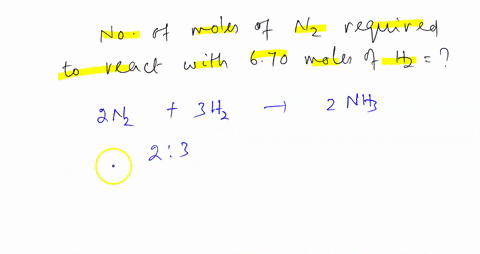 No. of moles of N2 required
to react with 6.70 moles of H2 = ?
2N2 + 3H2 → 2 NH3
2 : 3